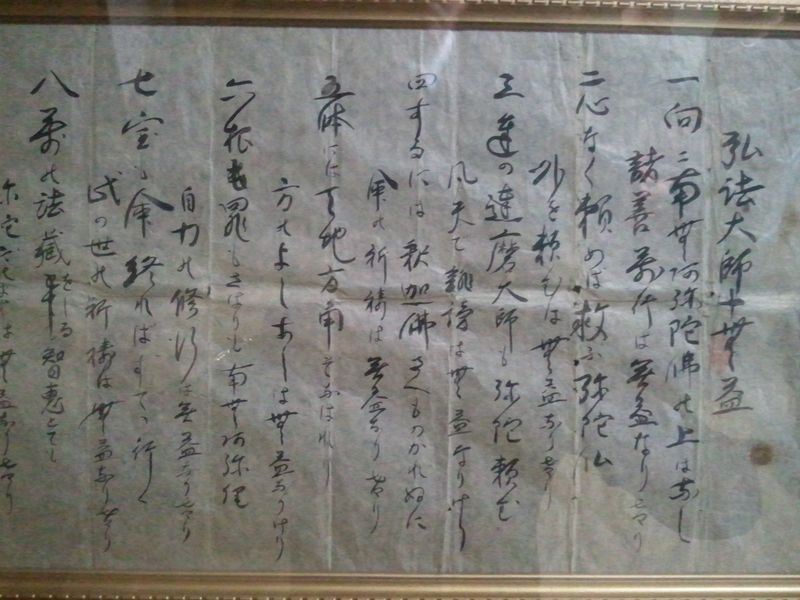 弘法大師十無益
一向ニ南無阿弥陀佛の上はなし
諸善万行は無益なりけり
二心なく頼めば救ふ弥陀仏
外を頼むは無益なりけり
三達の達磨大師も弥陀頼む
凡夫で誹謗は無益なりけり
四するには釈迦佛さへものかれぬに
命の祈祷は無益なりけり
五体には天地方角そなはれり
方のよしあしは無益なりけり
六根も罪もさはりも南無阿弥陀
自力の修行は無益なりけり
七宝も命終ればすてゝ行く
此の世の祈祷は無益なりけり
八萬の法蔵をしる智恵とても
は無益なりけり